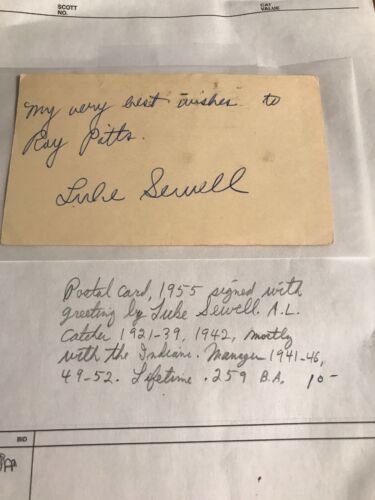 SCOTT
NO.
CAT.
VALUE
My very best wishes to
Roy Pitts.
Luke Sewell
Postal card, 1955 signed with
greeting by Luke Sewell. A.L.
Catcher 1921-39, 1942, mostly
with the Indians. Manager 1941-46,
49-52. Lifetime .259 B.A. 10-
BID